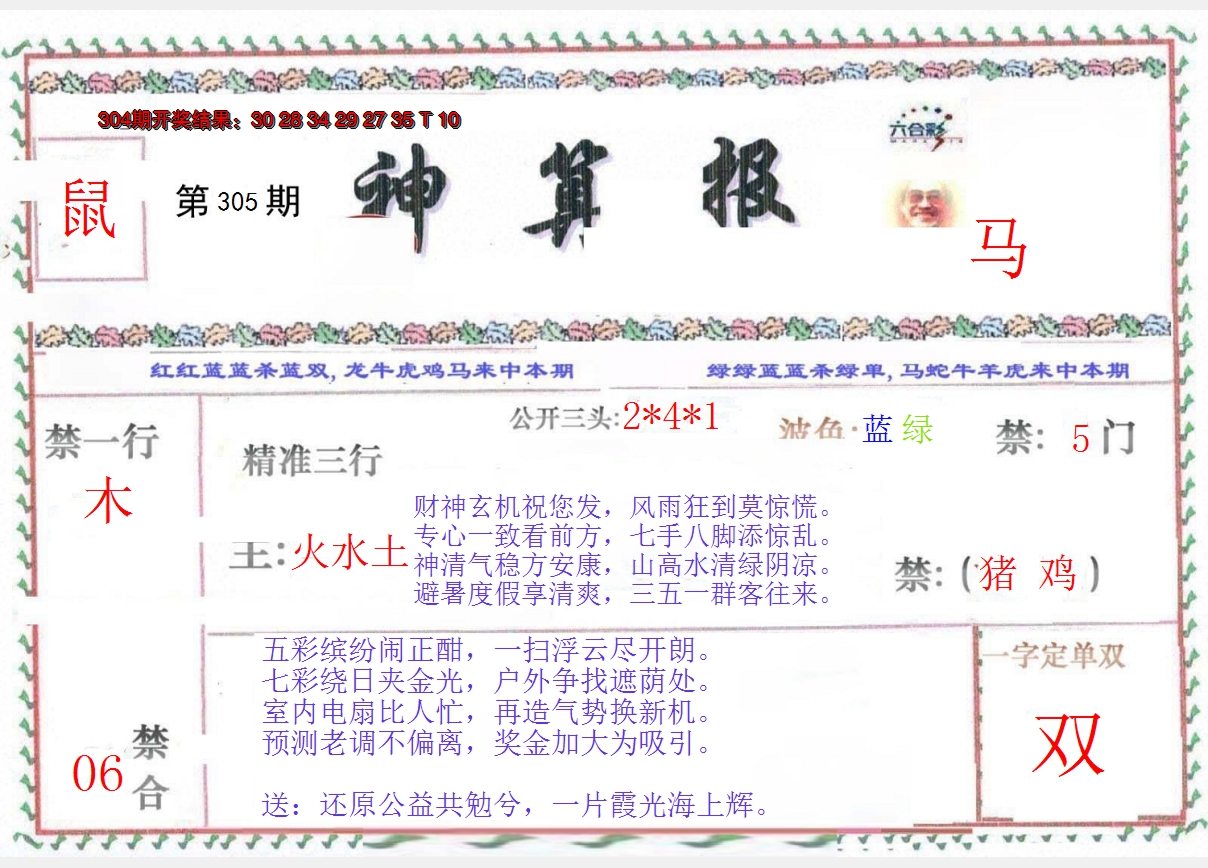 304期开奖结果：30 28 34 29 27 35 T 10
六合彩
鼠
第 305 期
神算报
马
红红蓝蓝杀蓝双, 龙牛虎鸡马来中本期
绿绿蓝蓝杀绿单, 马蛇牛羊虎来中本期
禁一行
木
精准三行
主:火水土
公开三头:2*4*1
波色:蓝 绿
禁: 5 门
财神玄机祝您发，风雨狂到莫惊慌。
专心一致看前方，七手八脚添惊乱。
神清气稳方安康，山高水清绿阴凉。
避暑度假享清爽，三五一群客往来。
禁:(猪 鸡)
五彩缤纷闹正酣，一扫浮云尽开朗。
七彩绕日夹金光，户外争找遮荫处。
室内电扇比人忙，再造气势换新机。
预测老调不偏离，奖金加大为吸引。
送：还原公益共勉兮，一片霞光海上辉。
06
禁合
一字定单双
双